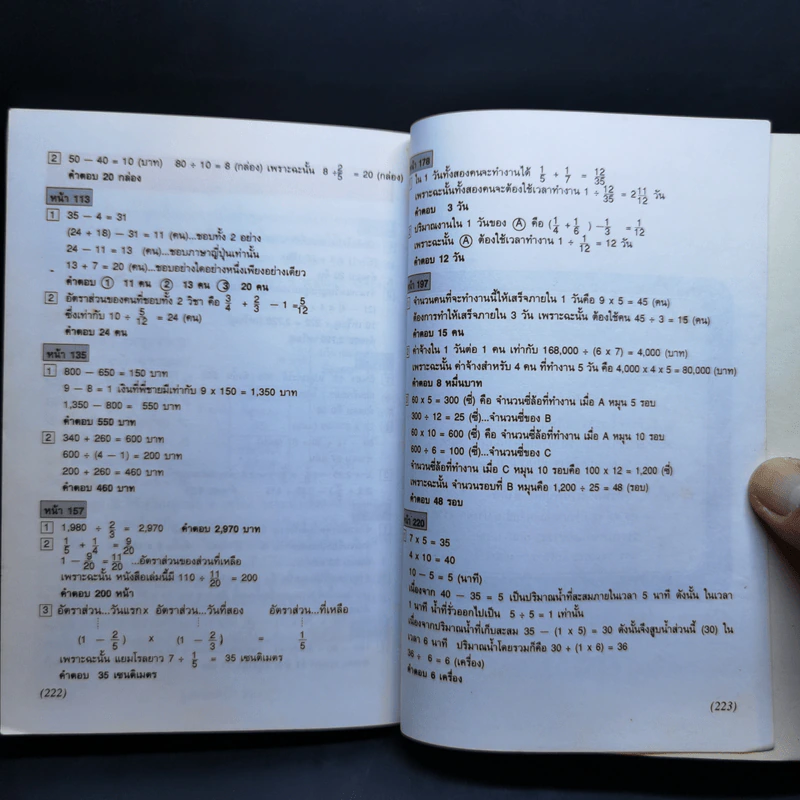 2 50 — 40 = 10 (บาท) 80 ÷ 10 = 8 (กล่อง) เพราะฉะนั้น 8 ÷ 2/5 = 20 (กล่อง)
คำตอบ 20 กล่อง
หน้า 113
1 35 — 4 = 31
(24 + 18) — 31 = 11 (คน)...ชอบทั้ง 2 อย่าง
24 — 11 = 13 (คน)...ชอบภาษาญี่ปุ่นเท่านั้น
13 + 7 = 20 (คน)...ชอบอย่างใดอย่างหนึ่งเพียงอย่างเดียว
คำตอบ ① 11 คน ② 13 คน ③ 20 คน
2 อัตราส่วนของคนที่ชอบทั้ง 2 วิชา คือ 3/4 + 2/3 — 1 = 5/12
ซึ่งเท่ากับ 10 ÷ 5/12 = 24 (คน)
คำตอบ 24 คน
หน้า 135
1 800 — 650 = 150 บาท
9 — 8 = 1 เงินที่พี่ชายมีเท่ากับ 9 x 150 = 1,350 บาท
1,350 — 800 = 550 บาท
คำตอบ 550 บาท
2 340 + 260 = 600 บาท
600 ÷ (4 — 1) = 200 บาท
200 + 260 = 460 บาท
คำตอบ 460 บาท
หน้า 157
1 1,980 ÷ 2/3 = 2,970 คำตอบ 2,970 บาท
2 1/5 + 1/4 = 9/20
1 — 9/20 = 11/20 ...อัตราส่วนของส่วนที่เหลือ
เพราะฉะนั้น หนังสือเล่มนี้มี 110 ÷ 11/20 = 200
คำตอบ 200 หน้า
3 อัตราส่วน...วันแรก x อัตราส่วน...วันที่สอง อัตราส่วน...ที่เหลือ
(1 — 2/5) x (1 — 2/3) = 1/5
เพราะฉะนั้น แยมโรลยาว 7 ÷ 1/5 = 35 เซนติเมตร
คำตอบ 35 เซนติเมตร
(222)
หน้า 178
ใน 1 วันทั้งสองคนจะทำงานได้ 1/5 + 1/7 = 12/35
เพราะฉะนั้นทั้งสองคนจะต้องใช้เวลาทำงาน 1 ÷ 12/35 = 2 11/12 วัน
คำตอบ 3 วัน
ปริมาณงานใน 1 วันของ Ⓐ คือ (1/4 + 1/6) — 1/3 = 1/12
เพราะฉะนั้น Ⓐ ต้องใช้เวลาทำงาน 1 ÷ 1/12 = 12 วัน
คำตอบ 12 วัน
หน้า 197
จำนวนคนที่จะทำงานนี้ให้เสร็จภายใน 1 วันคือ 9 x 5 = 45 (คน)
ต้องการทำให้เสร็จภายใน 3 วัน เพราะฉะนั้น ต้องใช้คน 45 ÷ 3 = 15 (คน)
คำตอบ 15 คน
ค่าจ้างใน 1 วันต่อ 1 คน เท่ากับ 168,000 ÷ (6 x 7) = 4,000 (บาท)
เพราะฉะนั้น ค่าจ้างสำหรับ 4 คน ที่ทำงาน 5 วัน คือ 4,000 x 4 x 5 = 80,000 (บาท)
คำตอบ 8 หมื่นบาท
60 x 5 = 300 (ซี่) คือ จำนวนซี่ล้อที่ทำงาน เมื่อ A หมุน 5 รอบ
300 ÷ 12 = 25 (ซี่)...จำนวนซี่ของ B
60 x 10 = 600 (ซี่) คือ จำนวนซี่ล้อที่ทำงาน เมื่อ A หมุน 10 รอบ
600 ÷ 6 = 100 (ซี่)...จำนวนซี่ของ C
จำนวนซี่ล้อที่ทำงาน เมื่อ C หมุน 10 รอบคือ 100 x 12 = 1,200 (ซี่)
เพราะฉะนั้น จำนวนรอบที่ B หมุนคือ 1,200 ÷ 25 = 48 (รอบ)
คำตอบ 48 รอบ
หน้า 220
7 x 5 = 35
4 x 10 = 40
10 — 5 = 5 (นาที)
เนื่องจาก 40 — 35 = 5 เป็นปริมาณน้ำที่สะสมภายในเวลา 5 นาที ดังนั้น ในเวลา
1 นาที น้ำที่รั่วออกไปเป็น 5 ÷ 5 = 1 เท่านั้น
เนื่องจากปริมาณน้ำที่เก็บสะสม 35 — (1 x 5) = 30 ดังนั้นจึงสูบน้ำส่วนนี้ (30) ใน
เวลา 6 นาที ปริมาณน้ำโดยรวมก็คือ 30 + (1 x 6) = 36
36 ÷ 6 = 6 (เครื่อง)
คำตอบ 6 เครื่อง
(223)